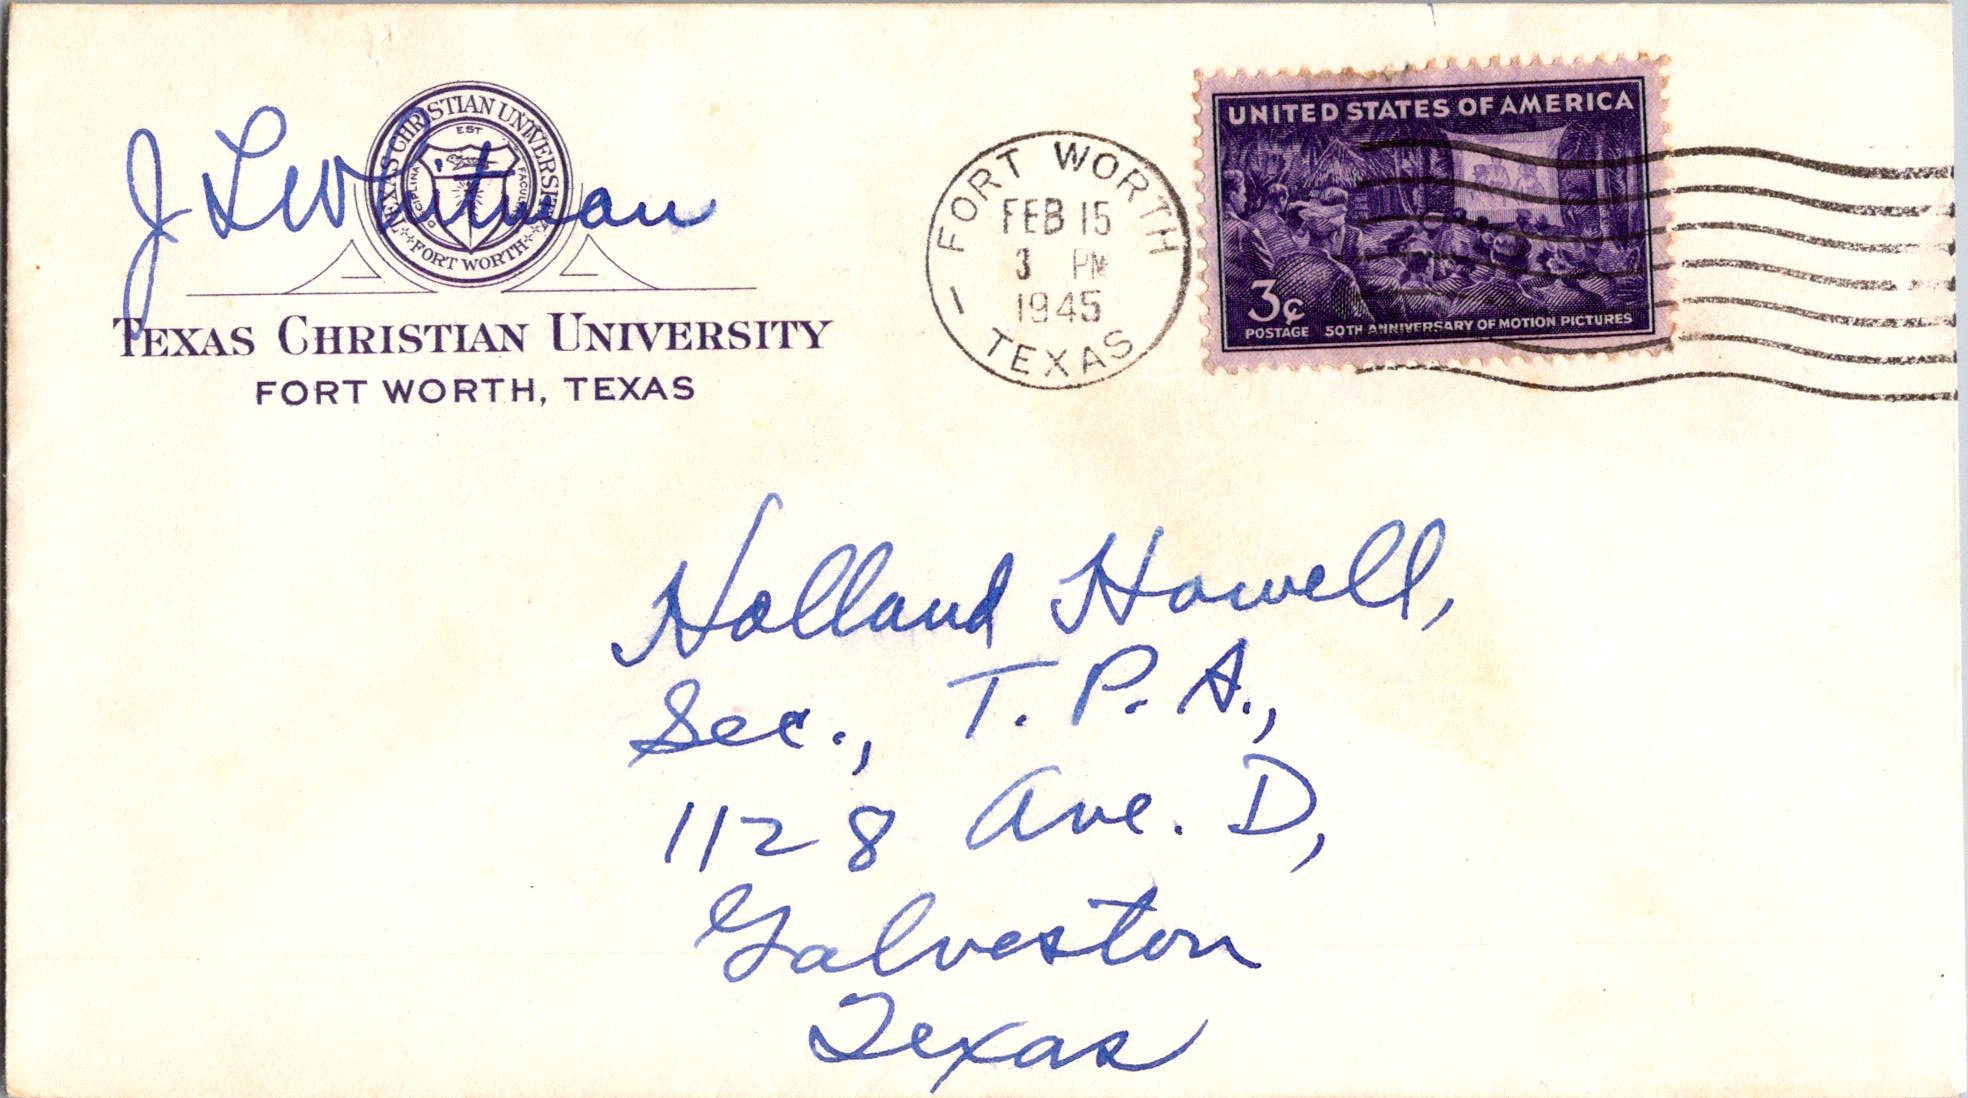 TEXAS CHRISTIAN UNIVERSITY
EST
DISCIPLINA
FACULTAS
FORT WORTH
J
TEXAS CHRISTIAN UNIVERSITY
FORT WORTH, TEXAS
FORT WORTH
FEB 15
3 PM
1945
1
TEXAS
UNITED STATES OF AMERICA
3¢
POSTAGE 50TH ANNIVERSARY OF MOTION PICTURES
Holland Howell,
Sec., T. P. A.,
1128 Ave. D,
Galveston
Texas